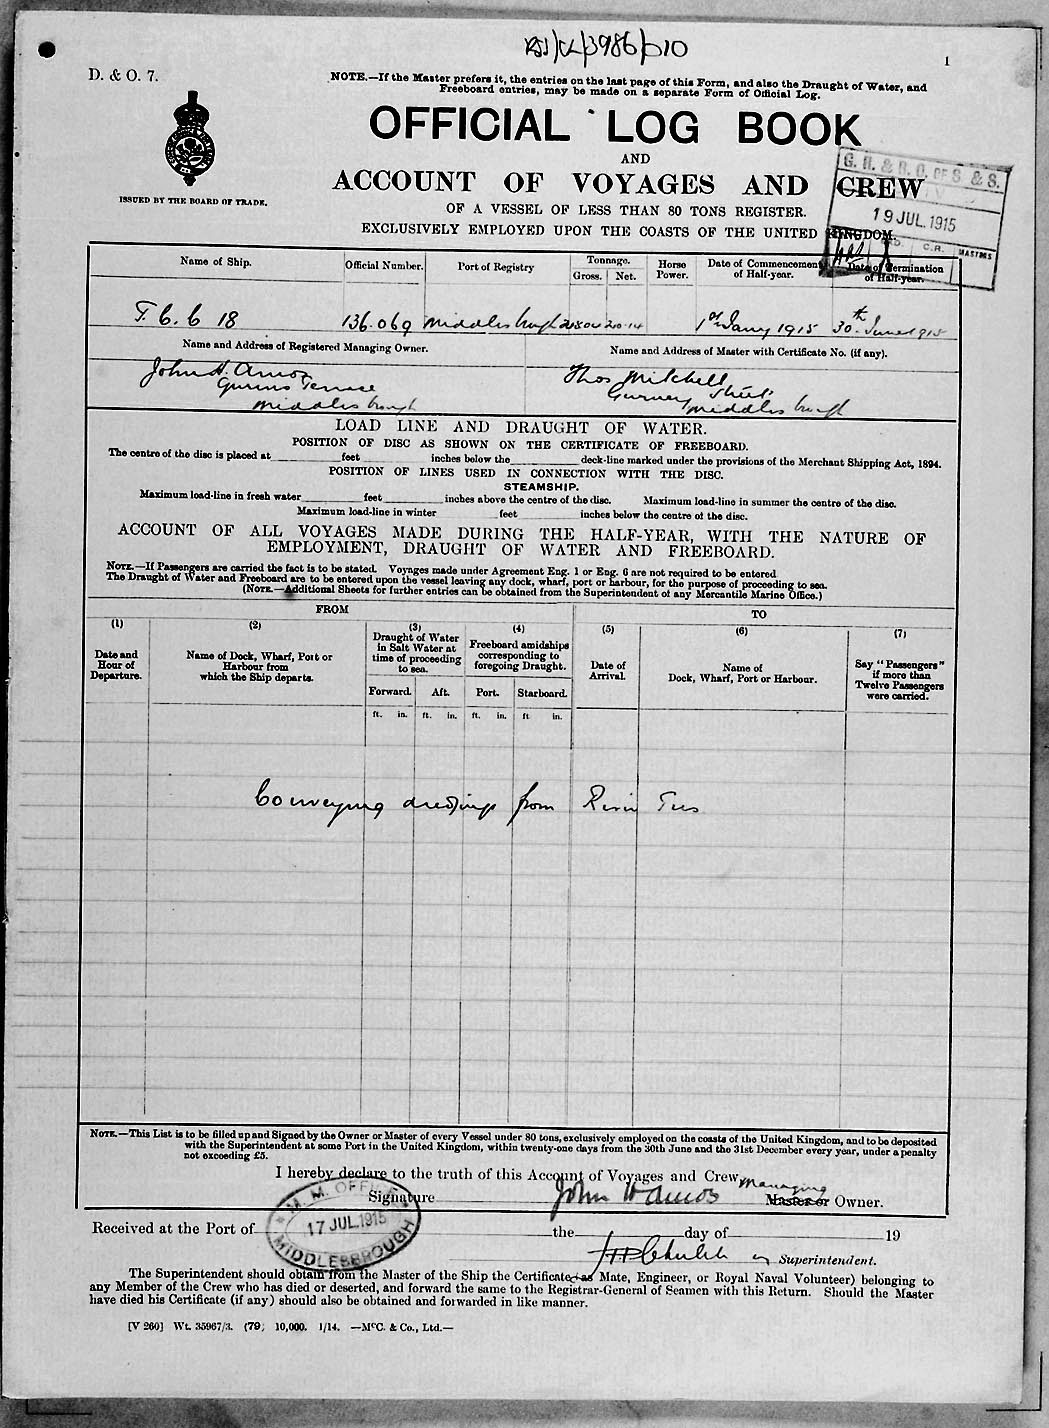 1
D. & O. 7.
NOTE.—If the Master prefers it, the entries on the last page of this Form, and also the Draught of Water, and
Freeboard entries, may be made on a separate Form of Official Log.
OFFICIAL LOG BOOK
AND
ACCOUNT OF VOYAGES AND CREW
OF A VESSEL OF LESS THAN 80 TONS REGISTER.
EXCLUSIVELY EMPLOYED UPON THE COASTS OF THE UNITED KINGDOM.
ISSUED BY THE BOARD OF TRADE.
G. R. & R. O. OF S & S.
19 JUL. 1915
C.R. MASTERS
Name of Ship. Official Number. Port of Registry Tonnage. Gross. Net. Horse Power. Date of Commencement of Half-year. Date of Termination of Half-year.
T. C. C 18 136.069 Middlesbrough 1st Jany 1915 30th June 1915
Name and Address of Registered Managing Owner. Name and Address of Master with Certificate No. (if any).
John H. Amos Thos Mitchell
Terrace Gurney Street
Middlesbrough Middlesbrough
LOAD LINE AND DRAUGHT OF WATER.
POSITION OF DISC AS SHOWN ON THE CERTIFICATE OF FREEBOARD.
The centre of the disc is placed at feet inches below the deck-line marked under the provisions of the Merchant Shipping Act, 1894.
POSITION OF LINES USED IN CONNECTION WITH THE DISC.
STEAMSHIP.
Maximum load-line in fresh water feet inches above the centre of the disc. Maximum load-line in summer the centre of the disc.
Maximum load-line in winter feet inches below the centre of the disc.
ACCOUNT OF ALL VOYAGES MADE DURING THE HALF-YEAR, WITH THE NATURE OF
EMPLOYMENT, DRAUGHT OF WATER AND FREEBOARD.
NOTE.—If Passengers are carried the fact is to be stated. Voyages made under Agreement Eng. 1 or Eng. 6 are not required to be entered
The Draught of Water and Freeboard are to be entered upon the vessel leaving any dock, wharf, port or harbour, for the purpose of proceeding to sea.
(NOTE.—Additional Sheets for further entries can be obtained from the Superintendent of any Mercantile Marine Office.)
FROM TO
(1) (2) (3) (4) (5) (6) (7)
Date and Hour of Departure. Name of Dock, Wharf, Port or Harbour from which the Ship departs. Draught of Water in Salt Water at time of proceeding to sea. Freeboard amidships corresponding to foregoing Draught. Date of Arrival. Name of Dock, Wharf, Port or Harbour. Say "Passengers" if more than Twelve Passengers were carried.
Forward. Aft. Port. Starboard.
ft. in. ft. in. ft. in. ft in.
Conveying dredgings from River Tees
NOTE.—This List is to be filled up and Signed by the Owner or Master of every Vessel under 80 tons, exclusively employed on the coasts of the United Kingdom, and to be deposited
with the Superintendent at some Port in the United Kingdom, within twenty-one days from the 30th June and the 31st December every year, under a penalty
not exceeding £5.
I hereby declare to the truth of this Account of Voyages and Crew,
Signature John H Amos Managing Master or Owner.
M. M. OFFICE
17 JUL. 1915
MIDDLESBROUGH
Received at the Port of the day of 19
Superintendent.
The Superintendent should obtain from the Master of the Ship the Certificate (as Mate, Engineer, or Royal Naval Volunteer) belonging to
any Member of the Crew who has died or deserted, and forward the same to the Registrar-General of Seamen with this Return. Should the Master
have died his Certificate (if any) should also be obtained and forwarded in like manner.
[V 260] Wt. 35967/3. (79) 10,000. 1/14. —McC. & Co., Ltd.—